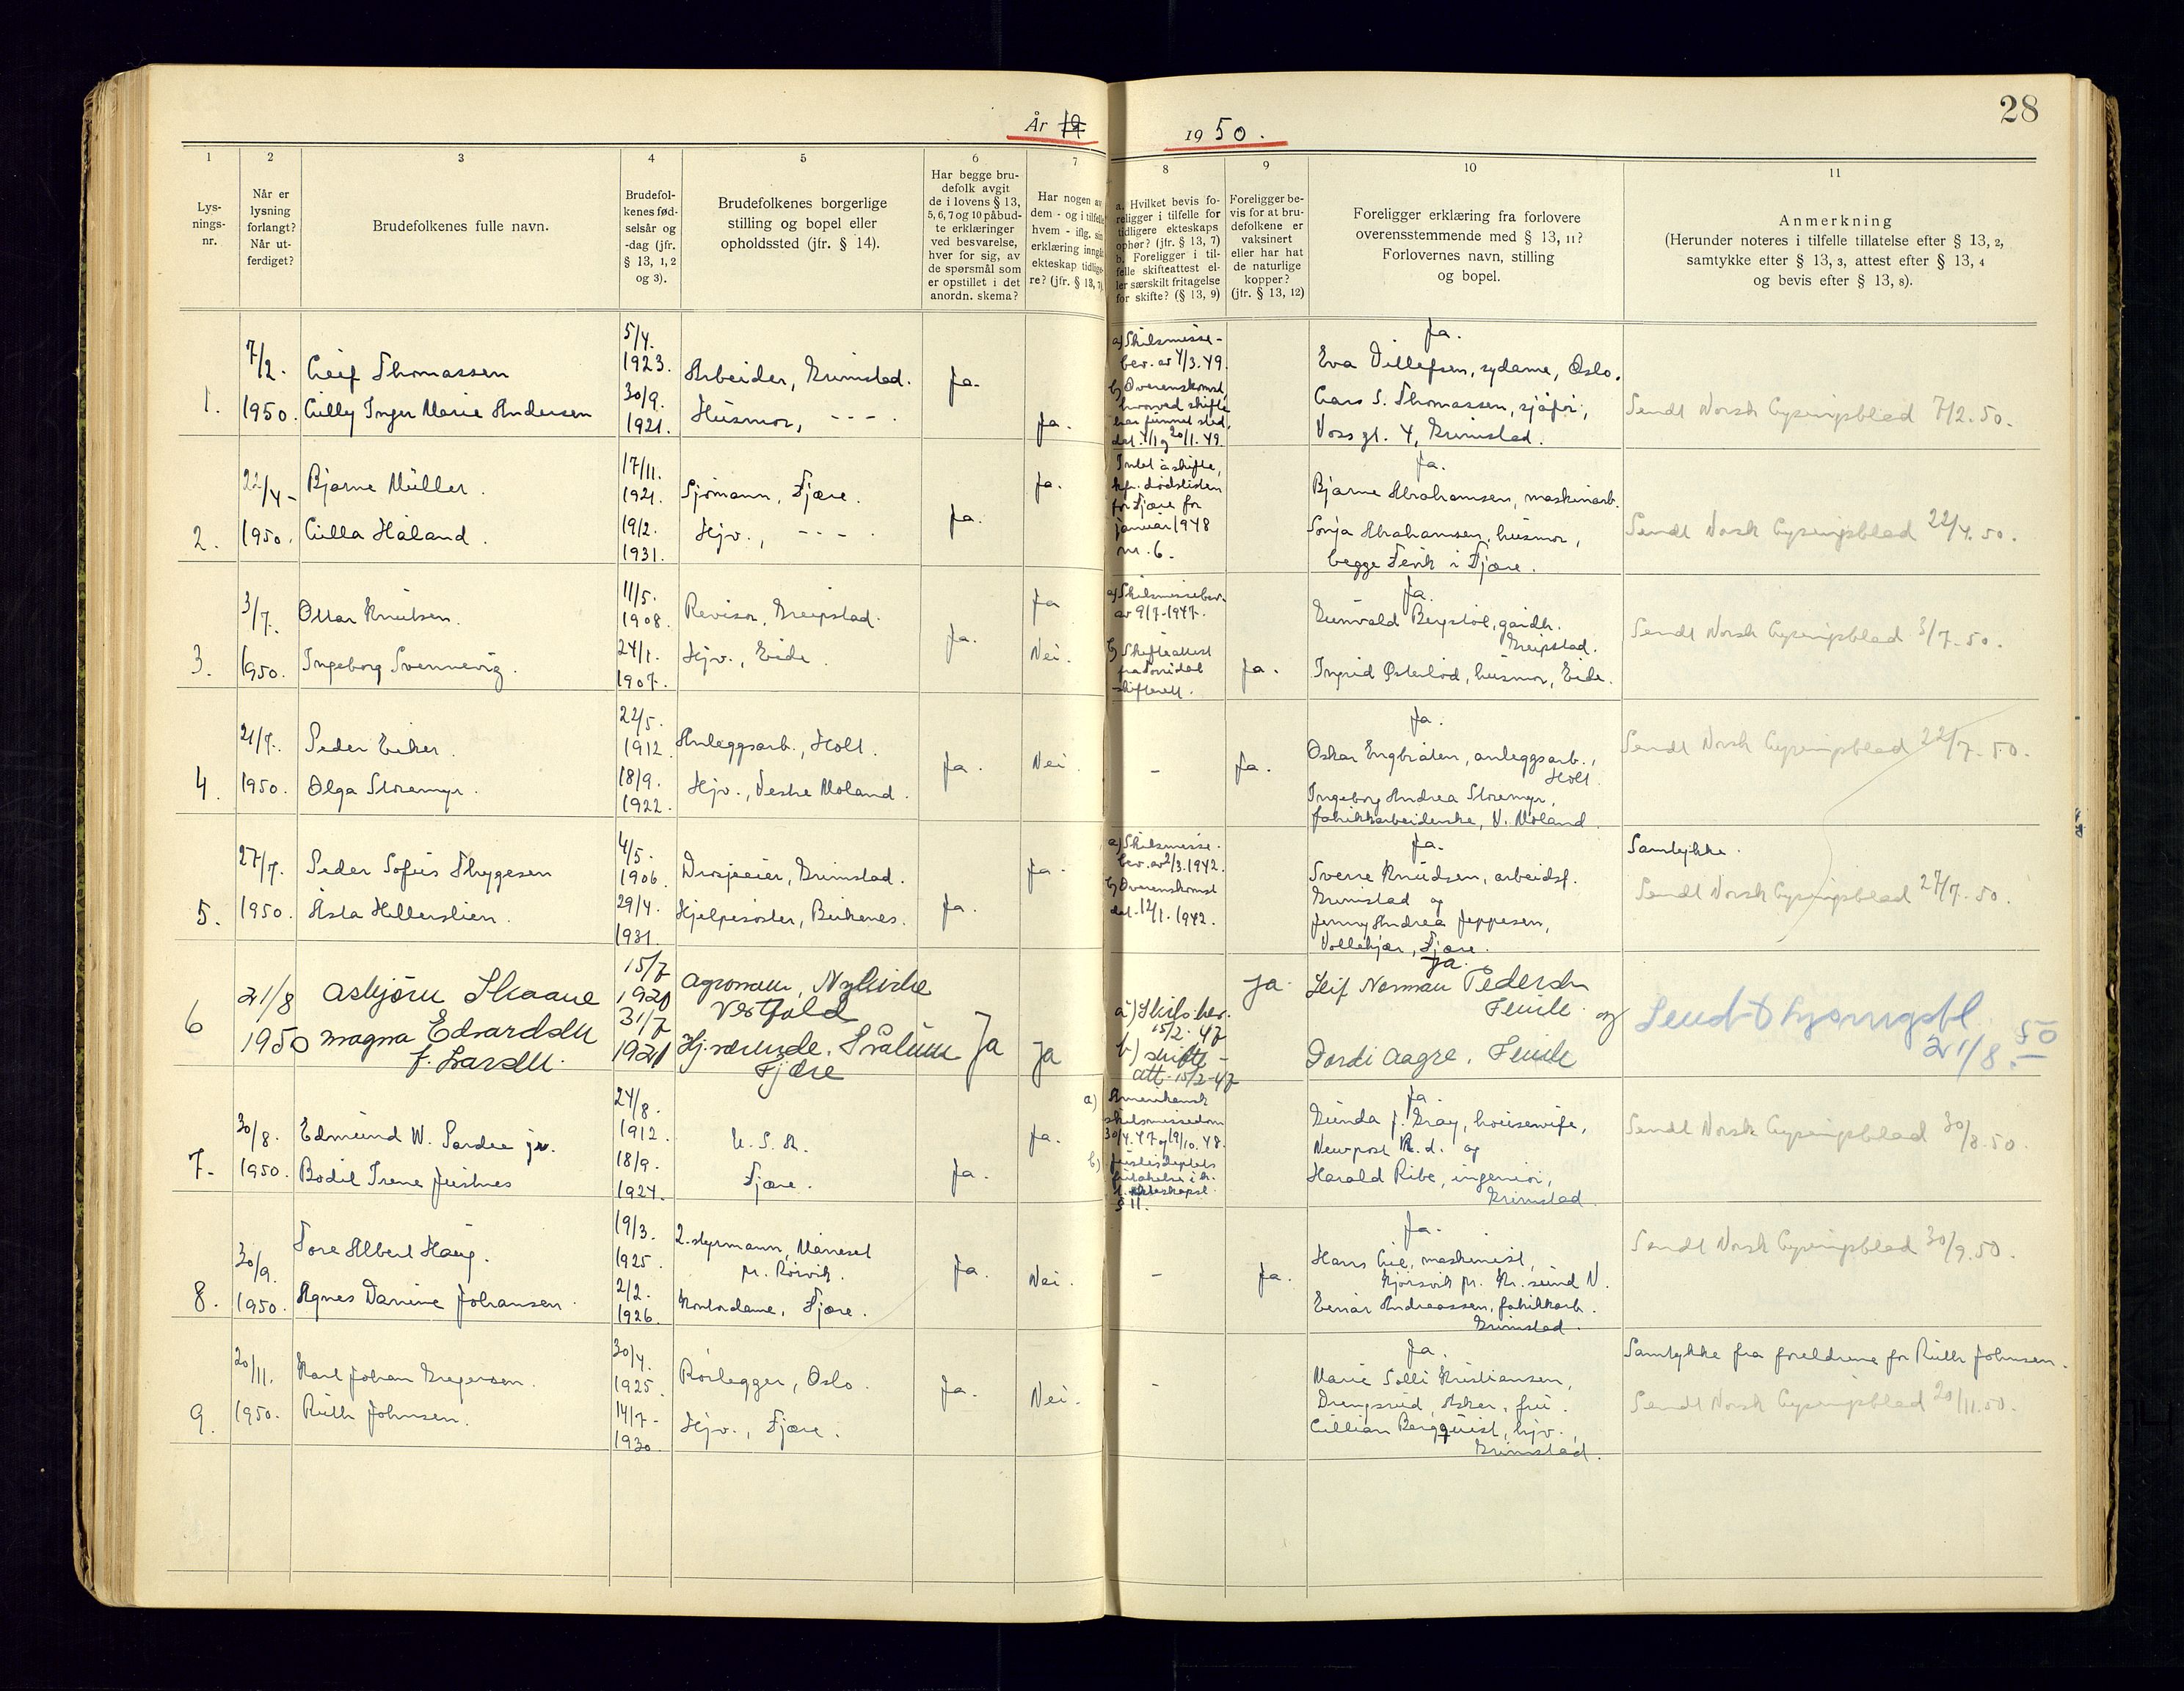 28
År 19
1950.
1
2
3
4
5
6
7
8
9
10
11
Lys-
nings-
nr.
Når er
lysning
forlangt?
Når ut-
ferdiget?
Brudefolkenes fulle navn.
Brudefol-
kenes fød-
selsår og
-dag (jfr.
§ 13, 1, 2
og 3).
Brudefolkenes borgerlige
stilling og bopel eller
opholdssted (jfr. § 14).
Har begge bru-
defolk avgit
de i lovens § 13,
5, 6, 7 og 10 påbud-
te erklæringer
ved besvarelse,
hver for sig, av
de spørsmål som
er opstillet i det
anordn. skema?
Har nogen av
dem - og i tilfelle
hvem - iflg. sin
erklæring inngått
ekteskap tidlige-
re? (jfr. § 13, 7)
a. Hvilket bevis fo-
religger i tilfelle for
tidligere ekteskaps
ophør? (jfr. § 13, 7)
b. Foreligger i til-
felle skifteattest el-
ler særskilt fritagelse
for skifte? (§ 13, 9)
Foreligger be-
vis for at bru-
defolkene er
vaksinert
eller har hat
de naturlige
kopper?
(jfr. § 13, 12)
Foreligger erklæring fra forlovere
overensstemmende med § 13, 11?
Forlovernes navn, stilling
og bopel.
Anmerkning
(Herunder noteres i tilfelle tillatelse efter § 13, 2,
samtykke efter § 13, 3, attest efter § 13, 4
og bevis efter § 13, 8).
1.
7/2.
1950.
Leif Thomassen
Lilly Inger Marie Andersen
5/4.
1923.
30/9.
1921.
Arbeider, Grimstad.
Husmor, - - - .
Ja.
Ja.
a) Skilsmisse-
bev. av 4/3.49.
b) Overenskomst,
hvorved skifte
har funnet sted,
dat. 4/1 og 20/1.49.
Ja.
Eva Tellefsen, sydame, Oslo.
Lars S. Thomassen, sjåfør,
Voss gt. 4, Grimstad.
Sendt Norsk Lysingsblad 7/2.50.
2.
22/4-
1950.
Bjarne Müller.
Lilla Håland.
17/11.
1921.
19/2.
1931.
Sjømann, Fjære.
Hjv., - - - .
Ja.
Ja.
Intet å skifte,
kfr. dødslisten
for Fjære for
januar 1948
nr. 6.
Ja.
Bjarne Abrahamsen, maskinarb.
Sonja Abrahamsen, husmor,
begge Fevik i Fjære.
Sendt Norsk Lysingsblad 22/4.50.
3.
3/7.
1950.
Ottar Knutsen.
Ingeborg Svennevig.
11/5.
1908.
24/1.
1907.
Revisor, Greipstad.
Hjv., Eide.
Ja.
Ja
Nei.
a) Skilsmissebev.
av 9/7-1947.
b) Skifteattest
fra Torridal
skifterett.
Ja.
Ja.
Gunvald Bergstøl, gårdbr.
Greipstad.
Ingrid Østerlod, husmor, Eide.
Sendt Norsk Lysingsblad 3/7-50.
4.
21/7.
1950.
Peder Eiker.
Olga Storemyr.
22/5.
1912
18/9.
1922.
Anleggsarb., Holt.
Hjv., Vestre Moland.
Ja.
Nei.
-
Ja.
Ja.
Oskar Engbråten, anleggsarb.,
Holt.
Ingeborg Andrea Storemyr,
fabrikkarbeiderske, V. Moland.
Sendt Norsk Lysingsblad 22/7-50.
5.
27/7.
1950.
Peder Sofus Thygesen
Åsta Hellerslien.
4/5.
1906.
29/4.
1931.
Drosjeeier, Grimstad.
Hjelpesøster, Birkenes.
Ja.
Ja.
a) Skilsmisse-
bev. av 2/3.1942.
b) Overenskomst
dat. 12/1.1942.
Ja.
Sverre Knudsen, arbeidsf.
Grimstad og
Jenny Andrea Jeppesen,
Vollekjær, Fjære.
Samtykke.
Sendt Norsk Lysingsblad 27/7.50.
6
21/8
1950
Asbjørn Skaane
Magna Edvardsen
f. Larsen.
15/7
1920
31/7
1921
Agronom, Nykirke
Vestfold
Hj.værende. Fjære
Ja
Ja
a) Skilsbev.
15/2-47
b) Skifte-
att. 15/2-47
Ja.
Ja.
Leif Norman Pedersen
Fevik og
Dordi Aagre. Fevik
Sendt Lysningsbl
21/8.50
7.
30/8.
1950.
Edmund W. Pardee jr.
Bodil Irene Justnes
24/8.
1912.
18/9.
1924.
U.S.A.
Fjære.
Ja.
Ja.
a) Amerikansk
skilsmissedom
30/4.47 og 19/10.48.
b) Justisdeptets
§ 11.
Ja
Gunda J. Gray, housewife,
Newport R.d. og
Harald Ribe, ingeniør,
Grimstad
Sendt Norsk Lysingsblad 30/8.50
8.
30/9.
1950.
Tore Albert Haug.
Agnes Danine Johansen.
19/3.
1925.
2/2.
1926.
2. styrmann, Måneset
pr. Rørvik.
Kontordame, Fjære.
Ja.
Nei.
-
Ja.
Ja.
Hans Lie, maskinist,
Kjørsvik pr. Kr.sund N.
Einar Andreassen, fabrikkarb.
Grimstad.
Sendt Norsk Lysingsblad 30/9.50.
9.
20/11.
1950.
Karl Johan Gregersen.
Ruth Johnsen.
30/4.
1925.
14/7-
1930.
Rørlegger, Oslo.
Hjv., Fjære.
Ja.
Nei.
-
Ja.
Marie Solli Kristiansen,
Drengsrud, Asker, frü.
Lillian Bergquist, hjv.,
Grimstad.
Samtykke fra foreldrene for Ruth Johnsen.
Sendt Norsk Lysingsblad 20/11.50.